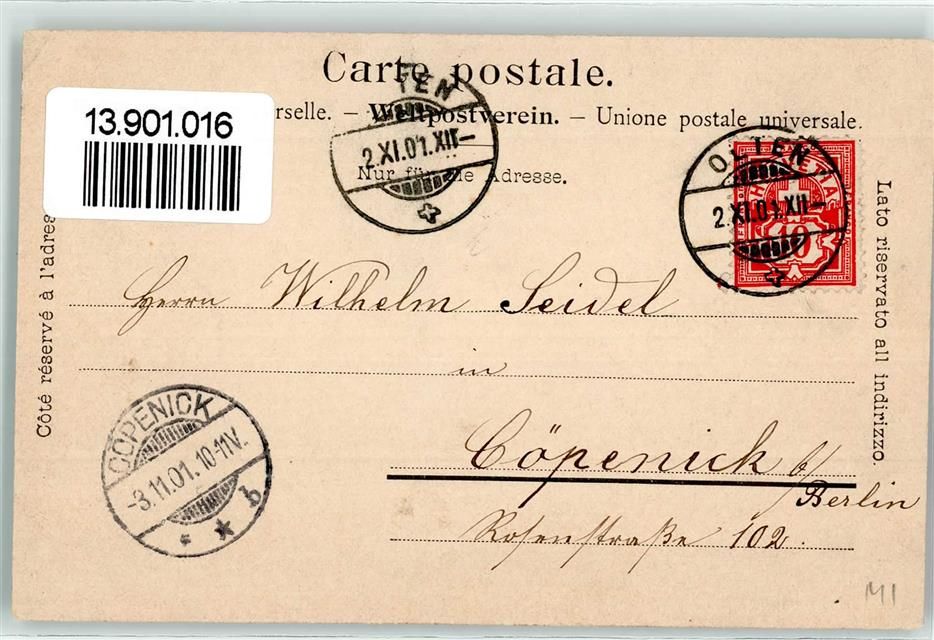 Carte postale.
13.901.016
rselle. — Weltpostverein. — Unione postale universale.
TEN
2.XI.01.XII—
Nur für die Adresse.
OLTEN
2.XI.01.XII—
HELVETIA
10
Côté réservé à l'adres
Lato riservato all indirizzo.
Herrn Wilhelm Seidel
in
CÖPENICK
-3.11.01.10-11V.
* * b
Cöpenick b/
Berlin
Rosenstraße 102.
M1